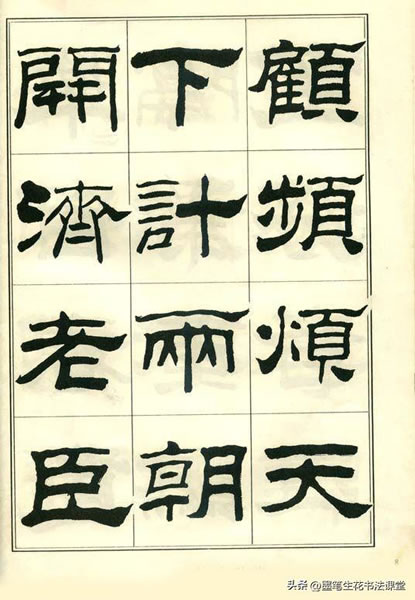 顧頻煩天
下計兩朝
開濟老臣
头条 @墨笔生花书法课堂